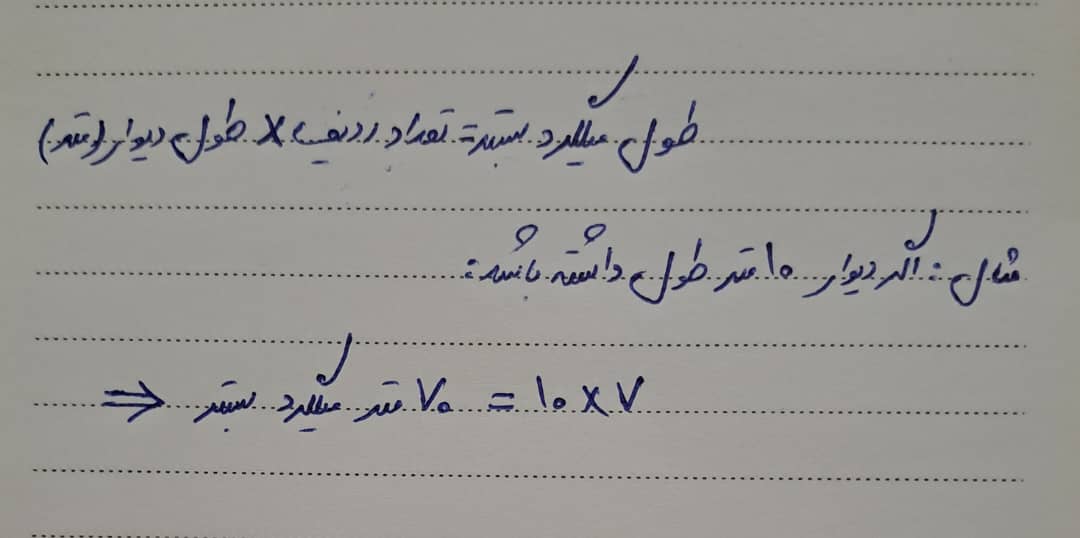 طول میلگرد بستر = تعداد ردیف × طول دیوار (متر)
مثال : اگر دیوار ۱۰ متر طول داشته باشد :
۷ × ۱۰ = ۷۰ متر میلگرد بستر ⇒